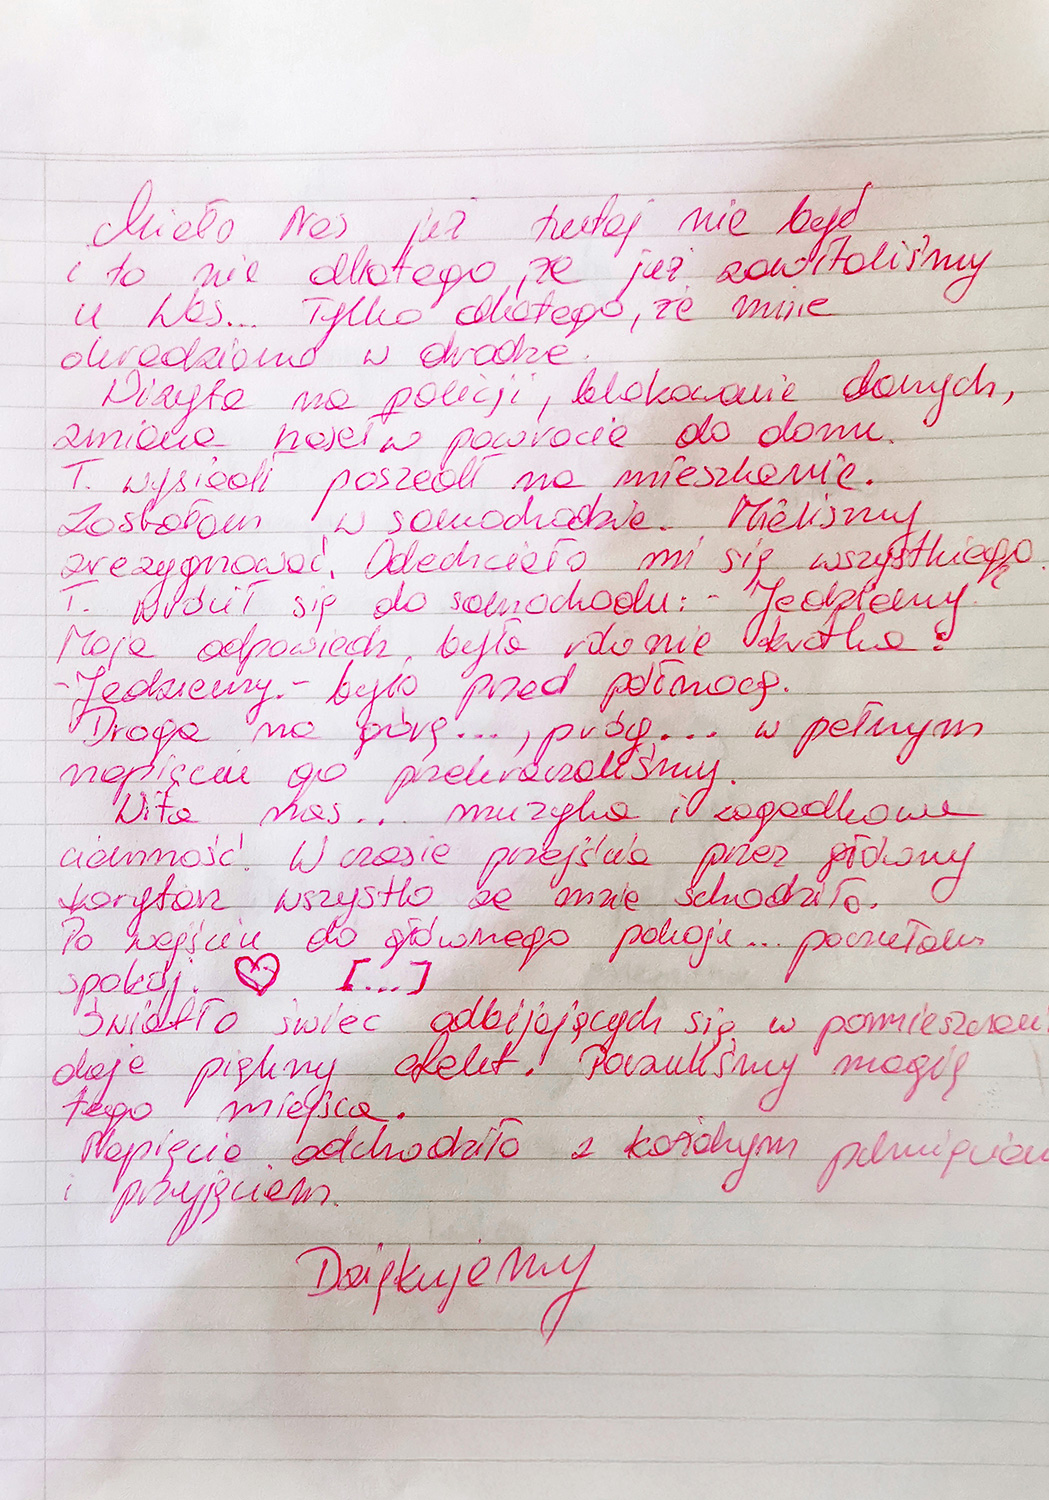 Miało Nas już tutaj nie być
i to nie dlatego, że już zawitaliśmy
u Was... Tylko dlatego, że mnie
okradziono w drodze.
Wizyta na policji, blokowanie danych,
zmiana haseł w powrocie do domu.
T. wysiadł poszedł na mieszkanie.
Zostałam w samochodzie. Mieliśmy
zrezygnować. Odechciało mi się wszystkiego.
T. wrócił się do samochodu: - Jedziemy.
Moja odpowiedź była równie krótka:
-Jedziemy.- było przed północą.
Droga na górę..., próg... w pełnym
napięciu go przekraczaliśmy.
Wita nas... muzyka i zagadkowa
ciemność. W czasie przejścia przez główny
korytarz wszystko ze mnie schodziło.
Po wejściu do głównego pokoju... poczułam
spokój. ♡ [...]
Światło świec odbijających się w
daje piękny efekt. Poczuliśmy magię
tego miejsca.
Napięcie odchodziło z każdym
i przyjęciem.
Dziękujemy